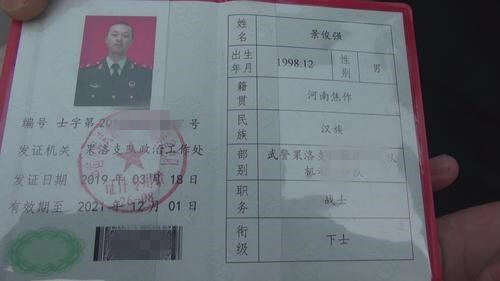 编号 士字第20 号
发证机关 果洛支队政治工作处
发证日期 2019 年 03 月 18 日
有效期至 2021 年 12 月 01 日
姓名 景俊强
出生年月 1998.12 性别 男
籍贯 河南焦作
民族 汉族
部别 武警果洛支 队
机动 队
职务 战士
衔级 下士